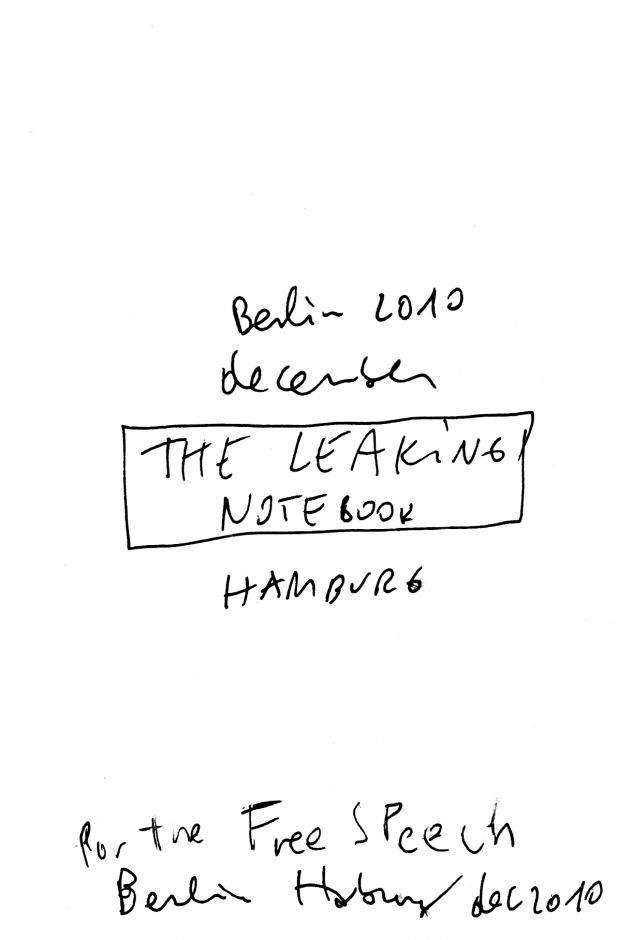 Berlin 2010
december
THE LEAKiNG
NOTEBOOK
HAMBURG
For the Free SPeech
Berlin dec 2010